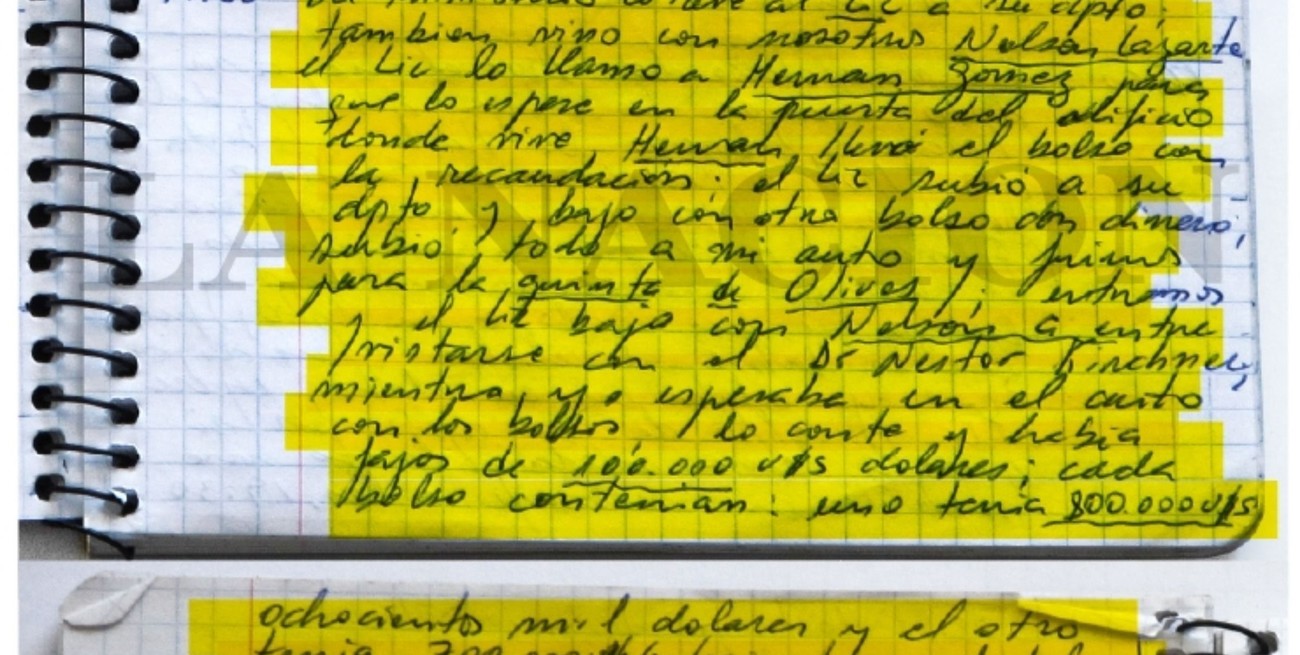 al Lic a su dpto;
tambien vino con nosotros Nelson Lazarte
el Lic lo llamo a Hernan Gomez para
que lo espere en la puerta del edificio
donde vive, Hernan llevó el bolso con
la recaudacion; el Lic subió a su
dpto y bajo con otro bolso con dinero;
subió todo a mi auto y fuimos
para la quinta de Olivos; entramos
y el Lic bajo con Nelson a entre
vistarse con el Dr Nestor Kirchner,
mientras yo esperaba en el auto
con los bolsos, lo conte y habia
fajos de 100.000 u$s dolares; cada
bolso contenian: uno tenia 800.000 u$s
ochocientos mil dolares y el otro
tenia 700
LA NACION